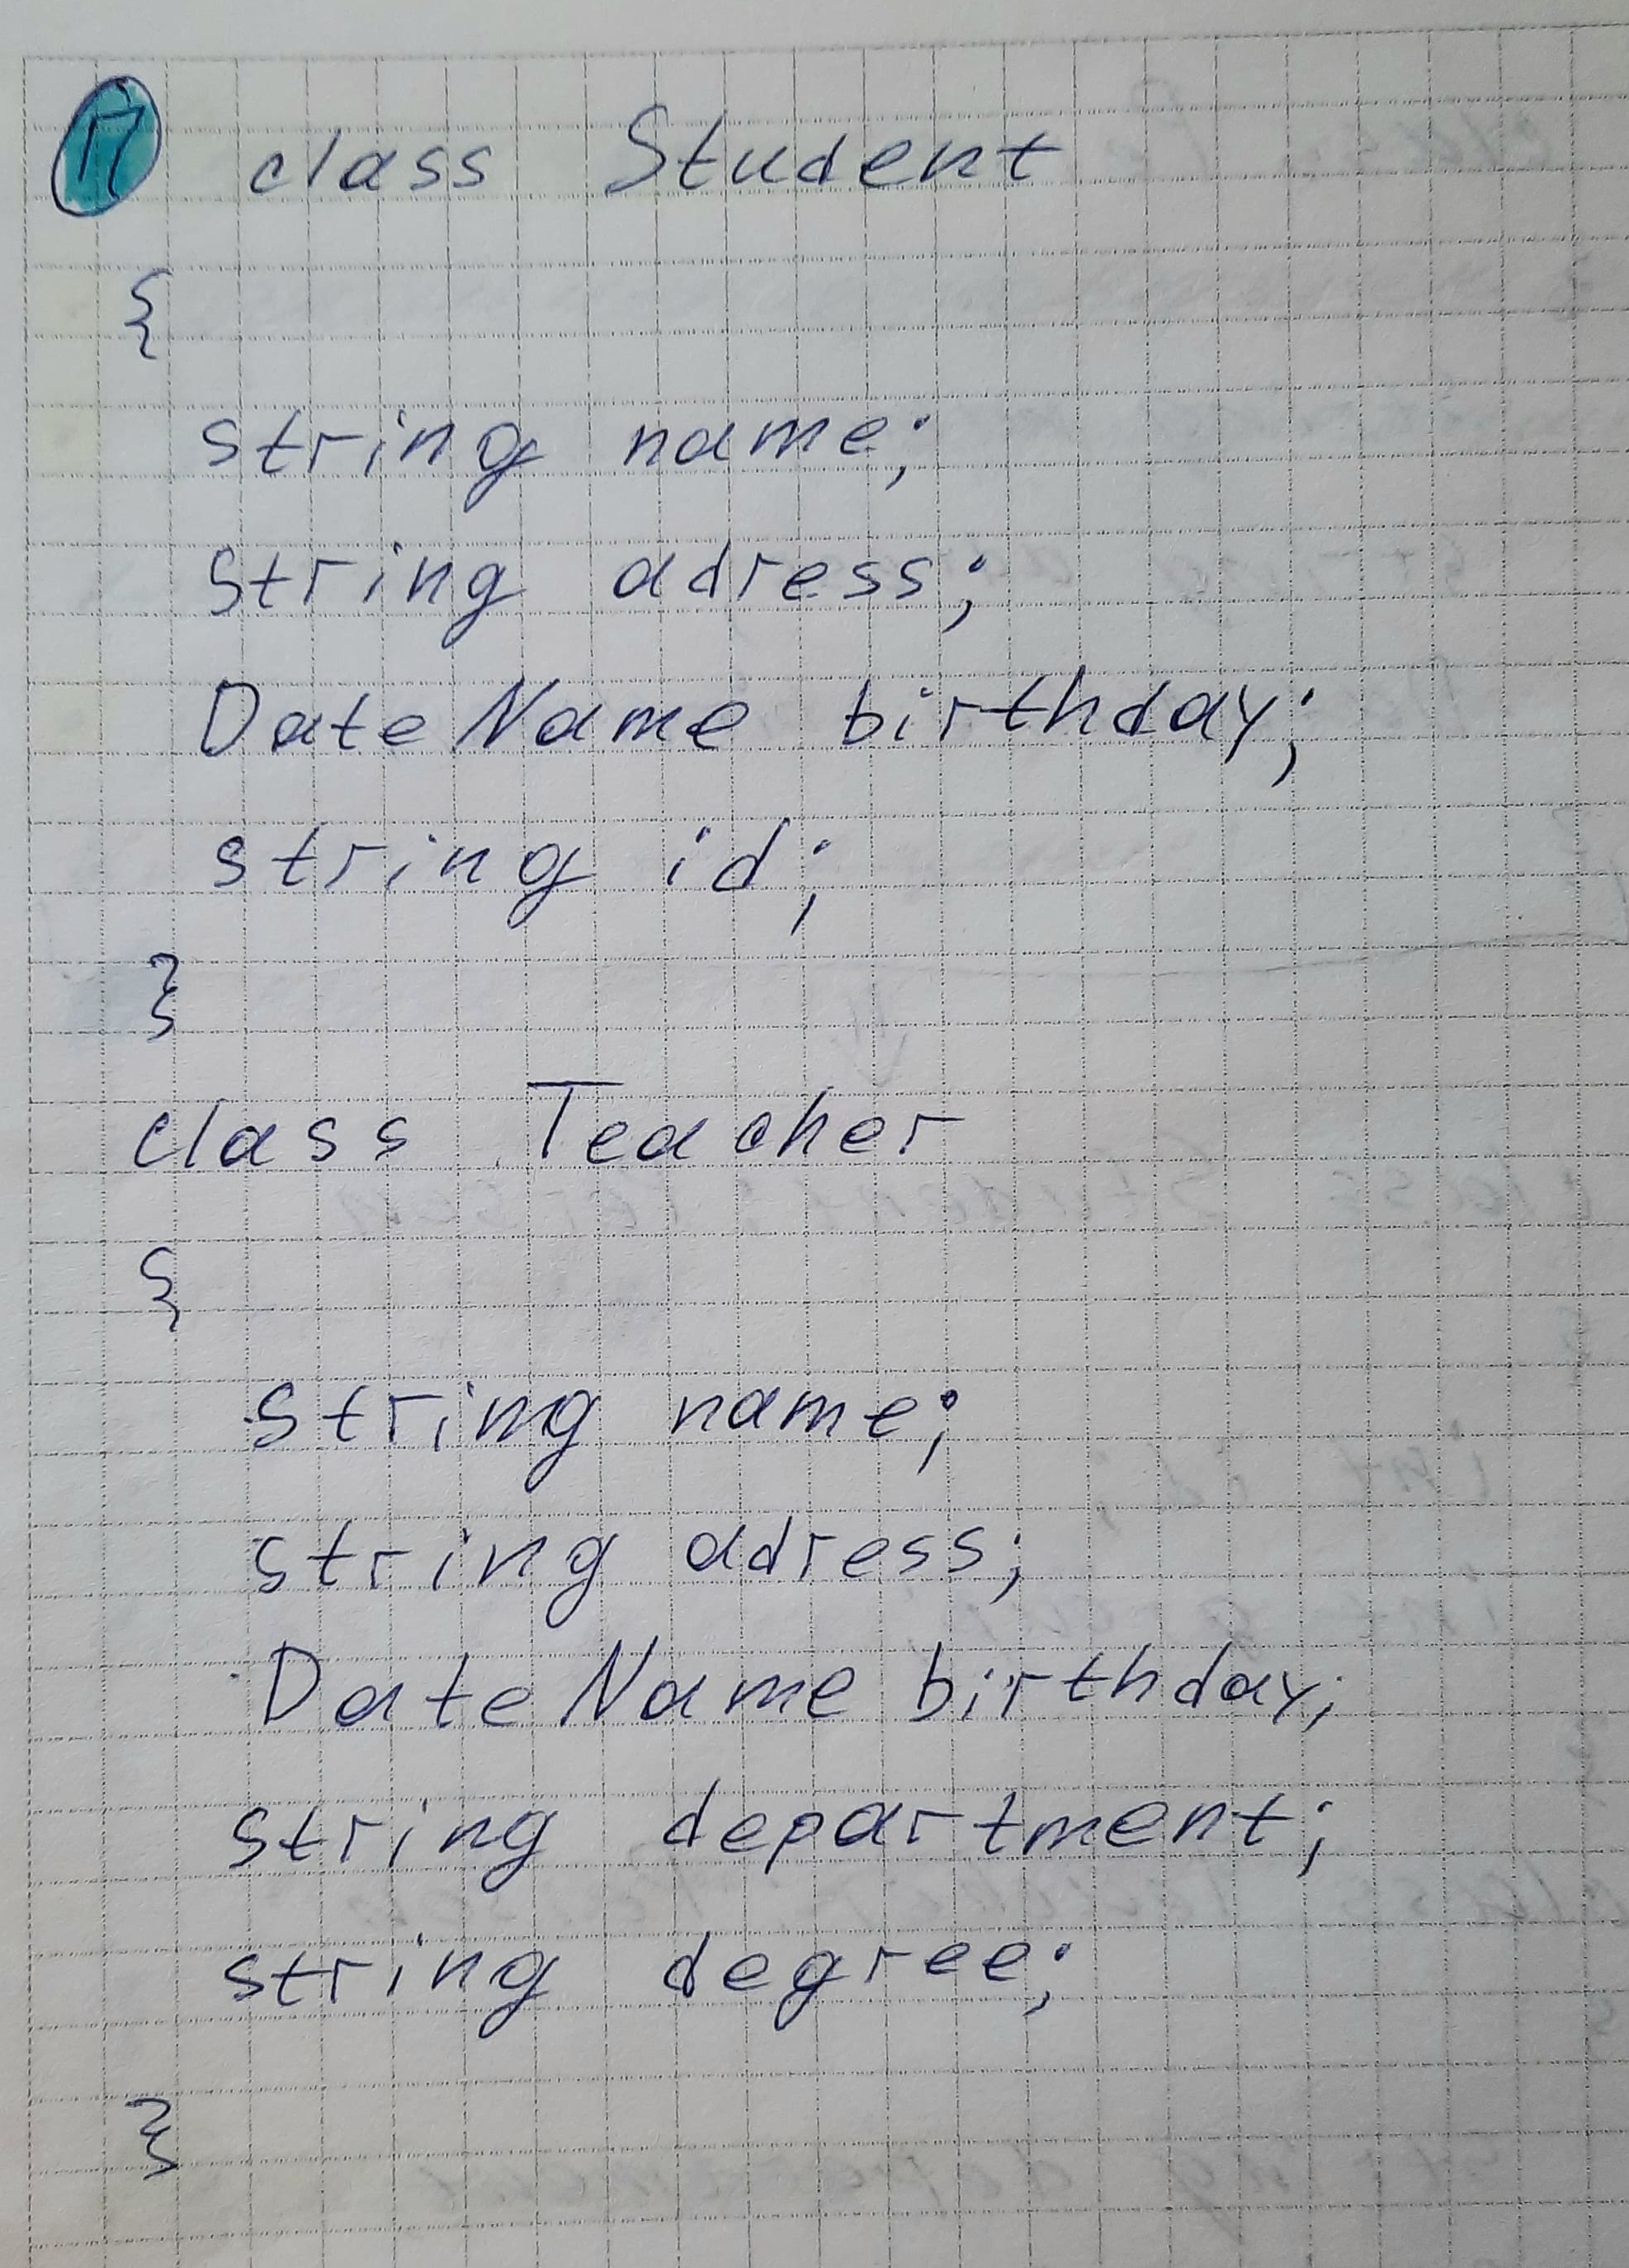 П class Student
{
string name;
string adress;
DateName birthday;
string id;
}
class Teacher
{
string name;
string adress;
DateName birthday;
string department;
string degree;
}